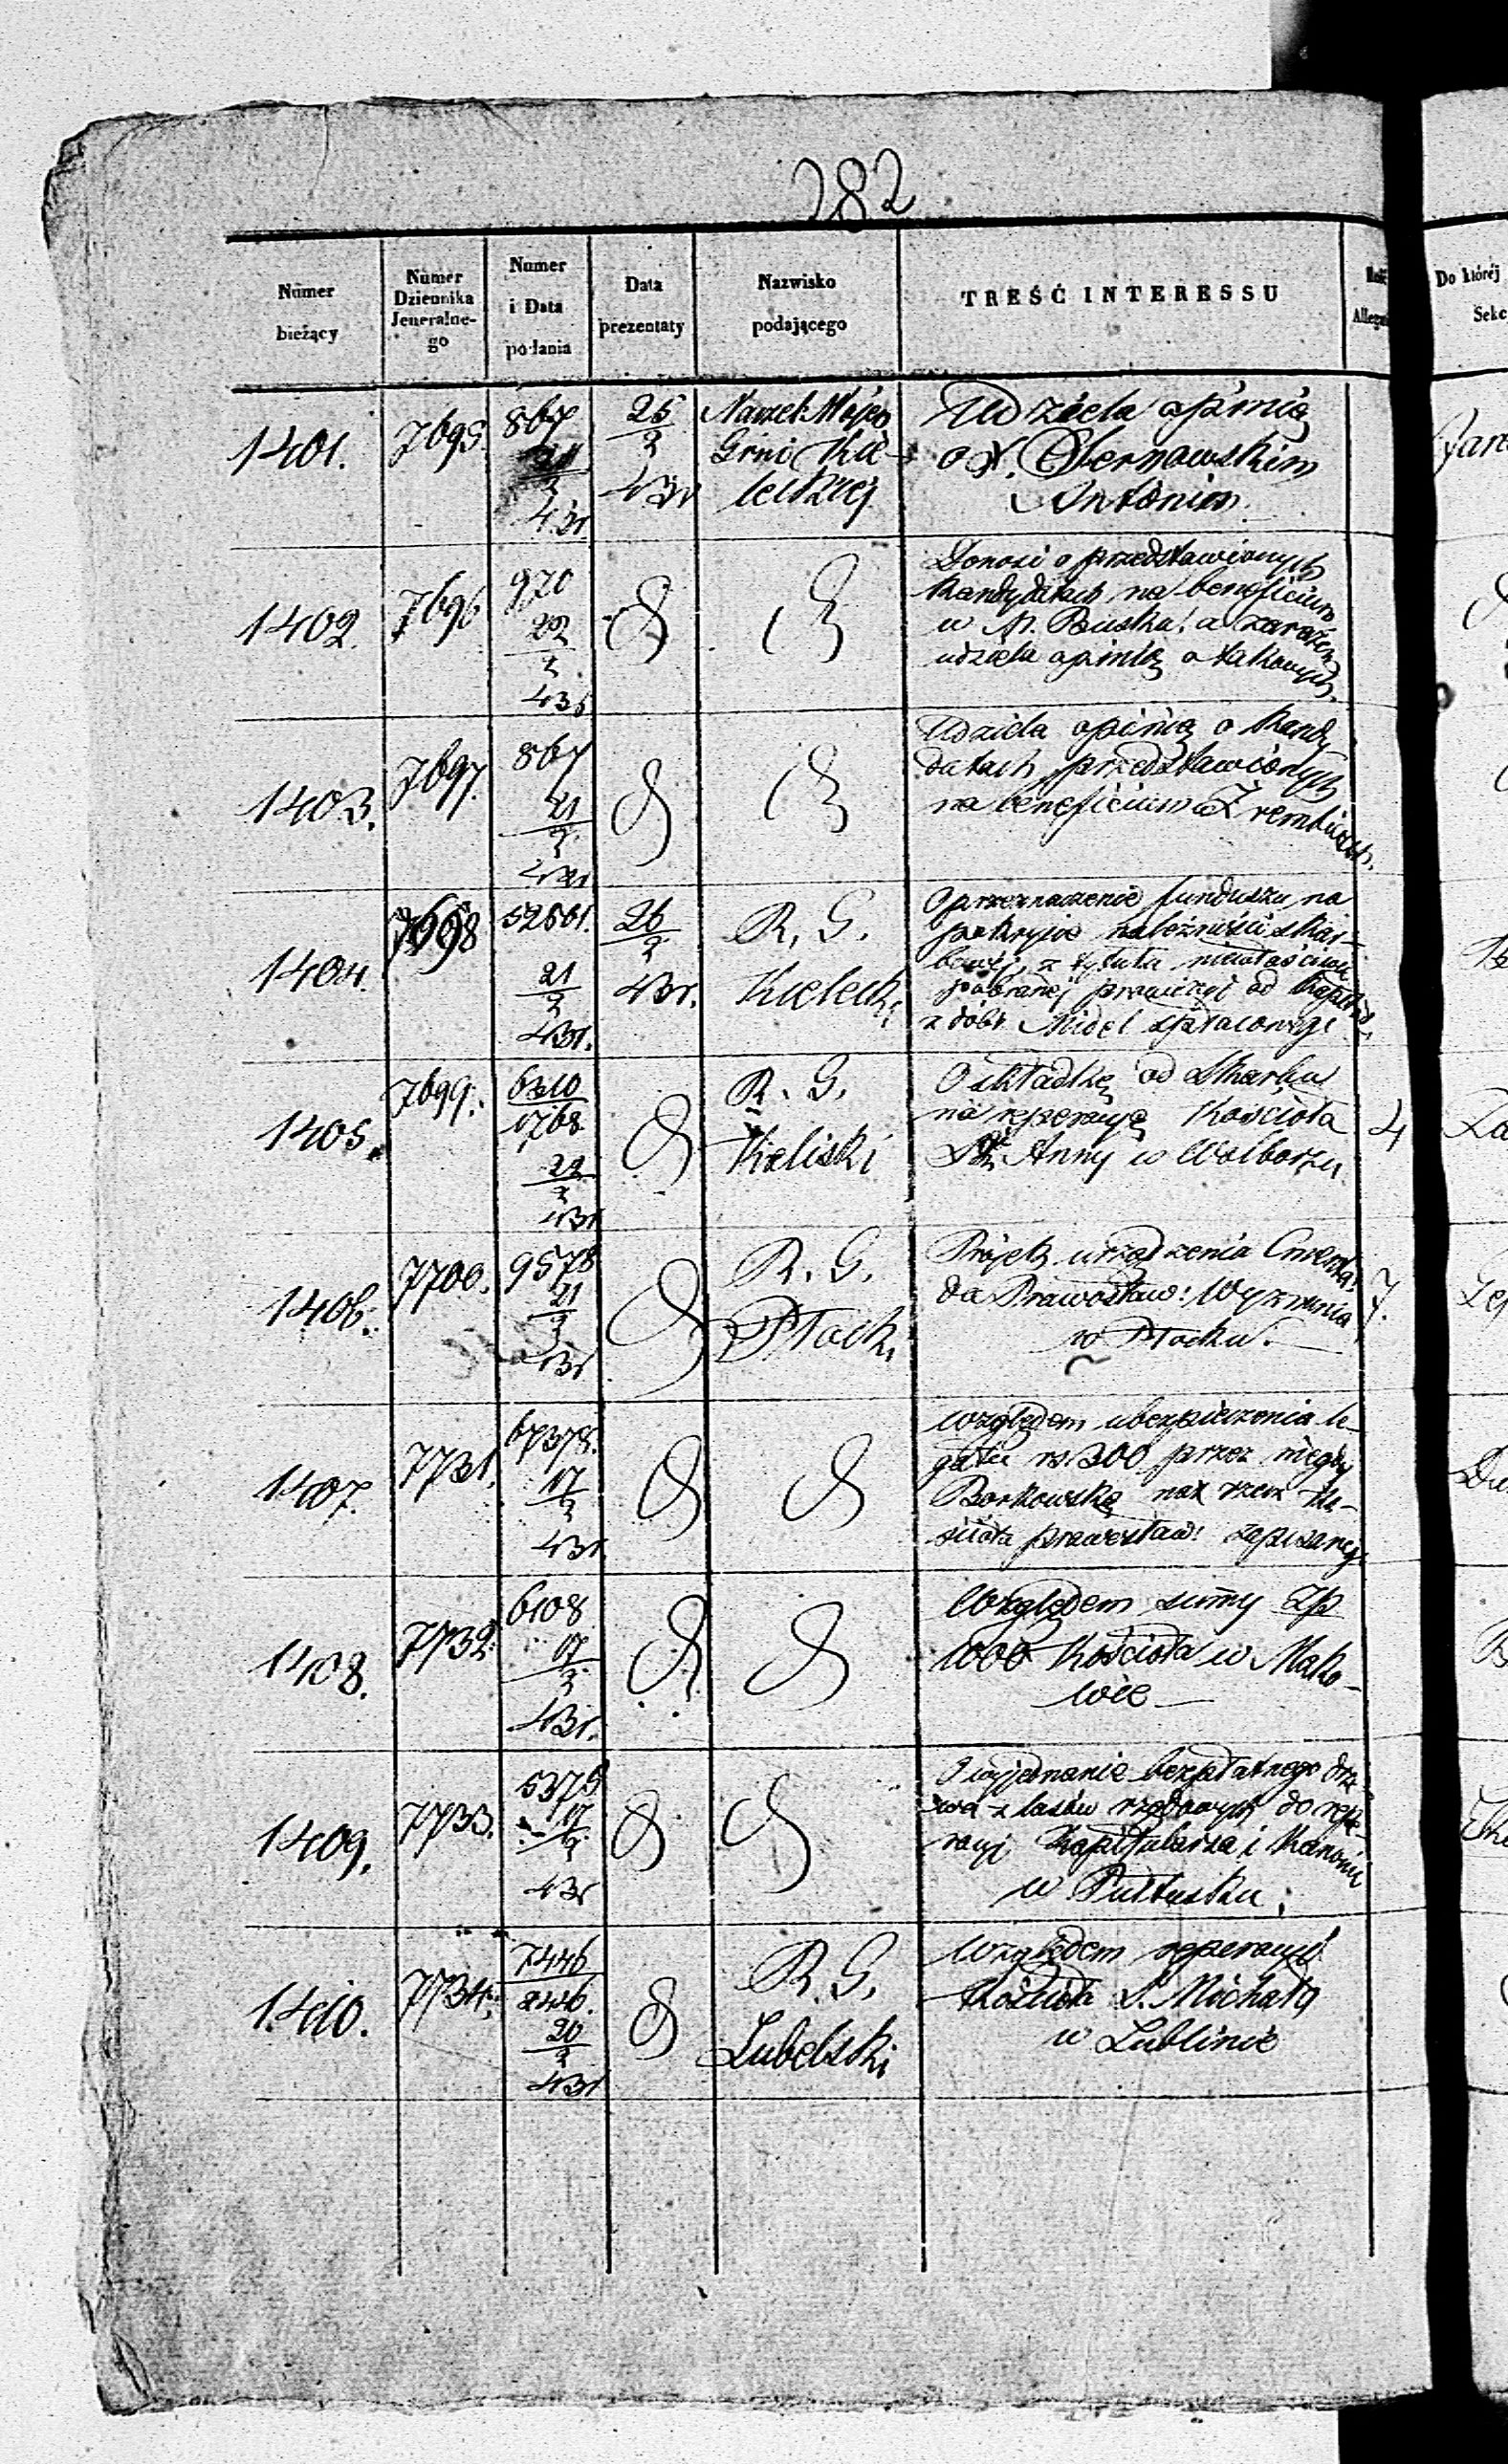 282
Numer bieżący
Numer Dziennika Jeneralne-go
Numer i Data podania
Data prezentaty
Nazwisko podającego
TREŚĆ INTERESSU
Ilość Allega
Do której Sekc
1401.
7695.
867
21
3
431
26
3
431
Naczel: Wojen
Grni Kie-
leckiej
Udziela opinią
o X.
Antonim.
1402.
7696
970
22
3
431
Donosi o przedstawionych
Kandydatach na beneficium
w M. Busku, a zarazem
udziela opinią o takowych.
1403.
7697.
867
21
3
431
Udziela opinią o Kandy
datach przedstawionych
na beneficium
1404.
7698
52661.
21
3
431.
26
3
431.
R. G.
Kielecki
O przeznaczenie funduszu na
pokrycie należności skar-
bowej, z tytułu niewłaściwie
pobranej prowizyi od Kapit
z dóbr spłaconego
1405.
7699.
6210
1768
22
3
431
R. G.
Kaliski
O składkę od Skarbu
na reperacyę Kościoła
Ś. Anny w Wolborzu
4
1406.
7700.
9578
21
3
431
R. G.
Płocki
Projekt urządzenia Cmenta
da Prawosław: Wyznania
w Płocku.
7.
1407.
7731.
67378.
17
3
431.
względem ubezpieczenia le-
gatu rs 300 przez niegdy
Borkowską na rzecz Ko-
ścioła prawosław: zapisanego
1408.
7732.
6108
17
3
431.
Względem summy Zp
1000 Kościoła w Mako-
wie
1409.
7733.
5379
17
3
431
O wyjednanie bezpłatnego drze
wa z lasów rządowych do repe-
racyi Kapitularza i Kanonii
w Pułtusku.
1410.
7734.
7446
2446.
20
3
431
R. G.
Lubelski
względem reperacyi
Kościoła S. Michała
w Lublinie